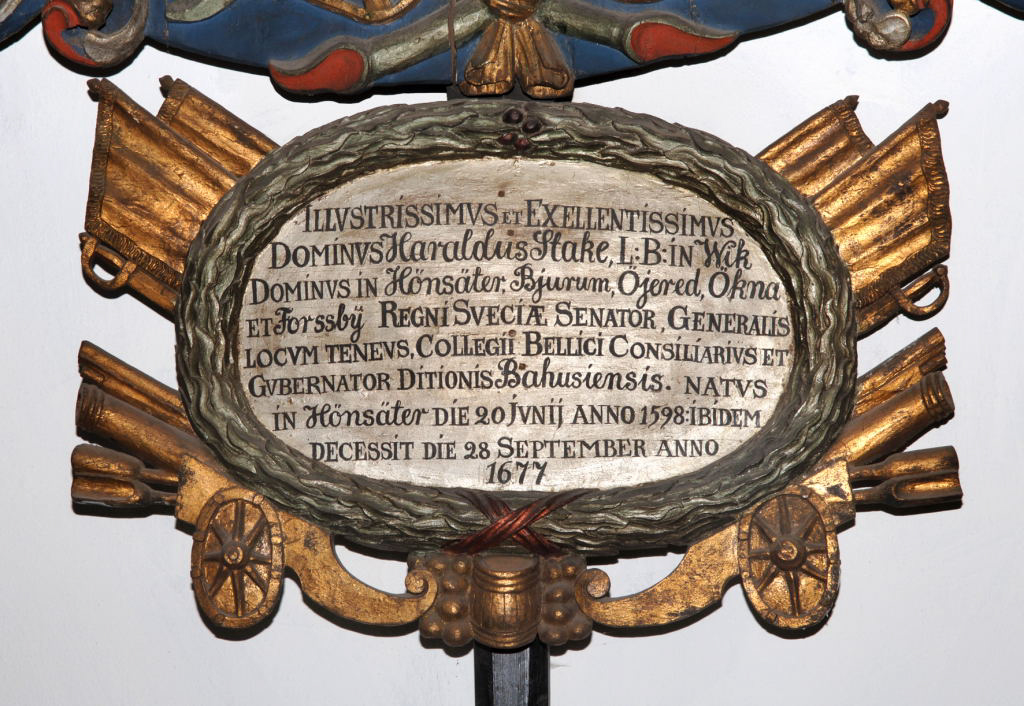 ILLVSTRISSIMVS ET EXELLENTISSIMUS
DOMINVS Haraldus Stake, L:B:IN Wik
DOMINVS IN Hönsäter, Bjurum, Öjered, Ökna
ET Forssbÿ REGNI SVECIÆ SENATOR, GENERALIS
LOCVM TENEVS, COLLEGII BELLICI CONSILIARIVS ET
GVBERNATOR DITIONIS Bahusiensis. NATVS
IN Hönsäter DIE 20 JVNIJ ANNO 1598·IBIDEM
DECESSIT DIE 28 SEPTEMBER ANNO
1677